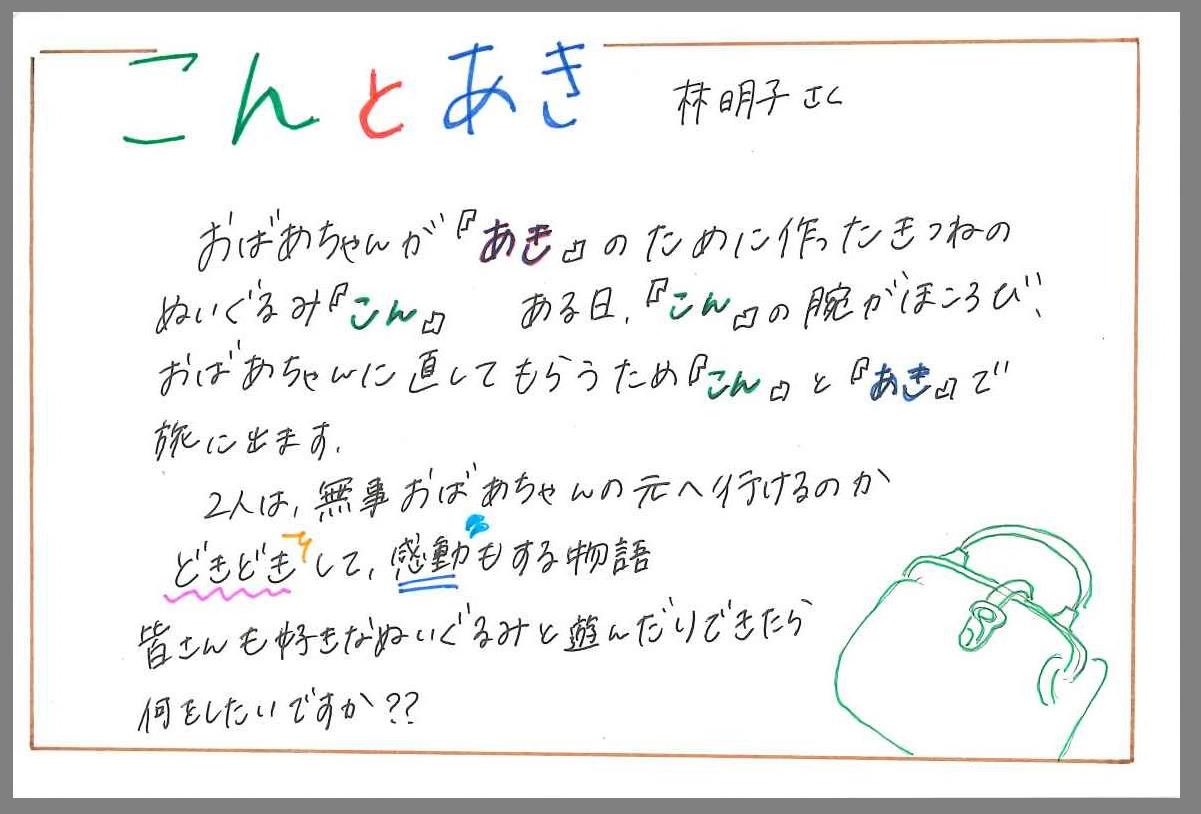 こんとあき 林明子 さく
おばあちゃんが『あき』のために作ったきつねの
ぬいぐるみ『こん』 ある日、『こん』の腕がほころび、
おばあちゃんに直してもらうため『こん』と『あき』で
旅に出ます。
2人は、無事おばあちゃんの元へ行けるのか
どきどきして、感動もする物語
皆さんも好きなぬいぐるみと遊んだりできたら
何をしたいですか??